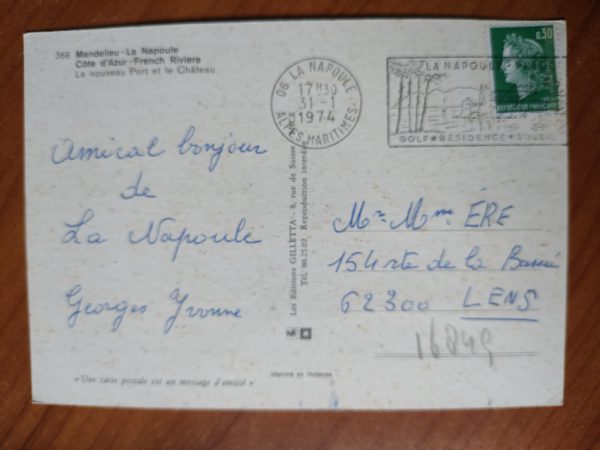 268 Mandelieu-La Napoule
Côte d'Azur-French Riviera
Le nouveau Port et le Château
06 LA NAPOULE
17H30
31-1
1974
ALPES-MARITIMES
LA NAPOULE
GOLF★RÉSIDENCE★SOLEIL
0,30
REPUBLIQUE FRANÇAISE
Amical bonjour
de
La Napoule
Georges Yvonne
Les Editions GILLETTA - 8, rue de Suisse
Tél. 88.23.02. Reproduction interdite
Mr Mme ÉRE
154 rte de la Bassée
62300 LENS
16849
«Une carte postale est un message d'amitié»
Imprimé en Hollande